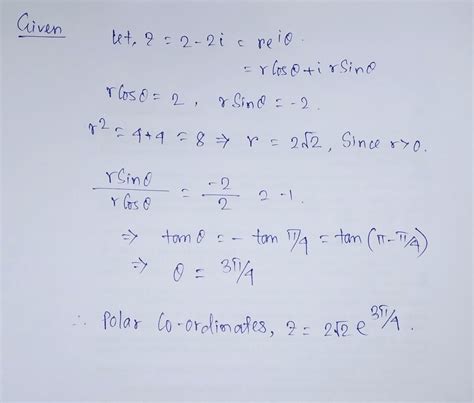 Given
let, z = 2-2i = re^{iθ}.
= r Cosθ + i r Sinθ
r Cosθ = 2 , r Sinθ = -2.
r² = 4+4 = 8 ⇒ r = 2√2, Since r>0.
r Sinθ / r Cosθ = -2/2 = -1.
⇒ tanθ = - tan π/4 = tan (π-π/4)
⇒ θ = 3π/4
∴ Polar Co-ordinates, z = 2√2 e^{3π/4}.